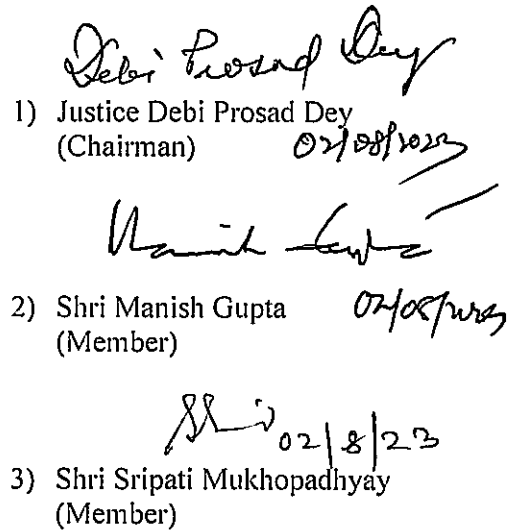 Debi Prosad Dey
1) Justice Debi Prosad Dey
(Chairman) 02/08/2023
Manish Gupta
2) Shri Manish Gupta 02/08/2023
(Member)
02/8/23
3) Shri Sripati Mukhopadhyay
(Member)